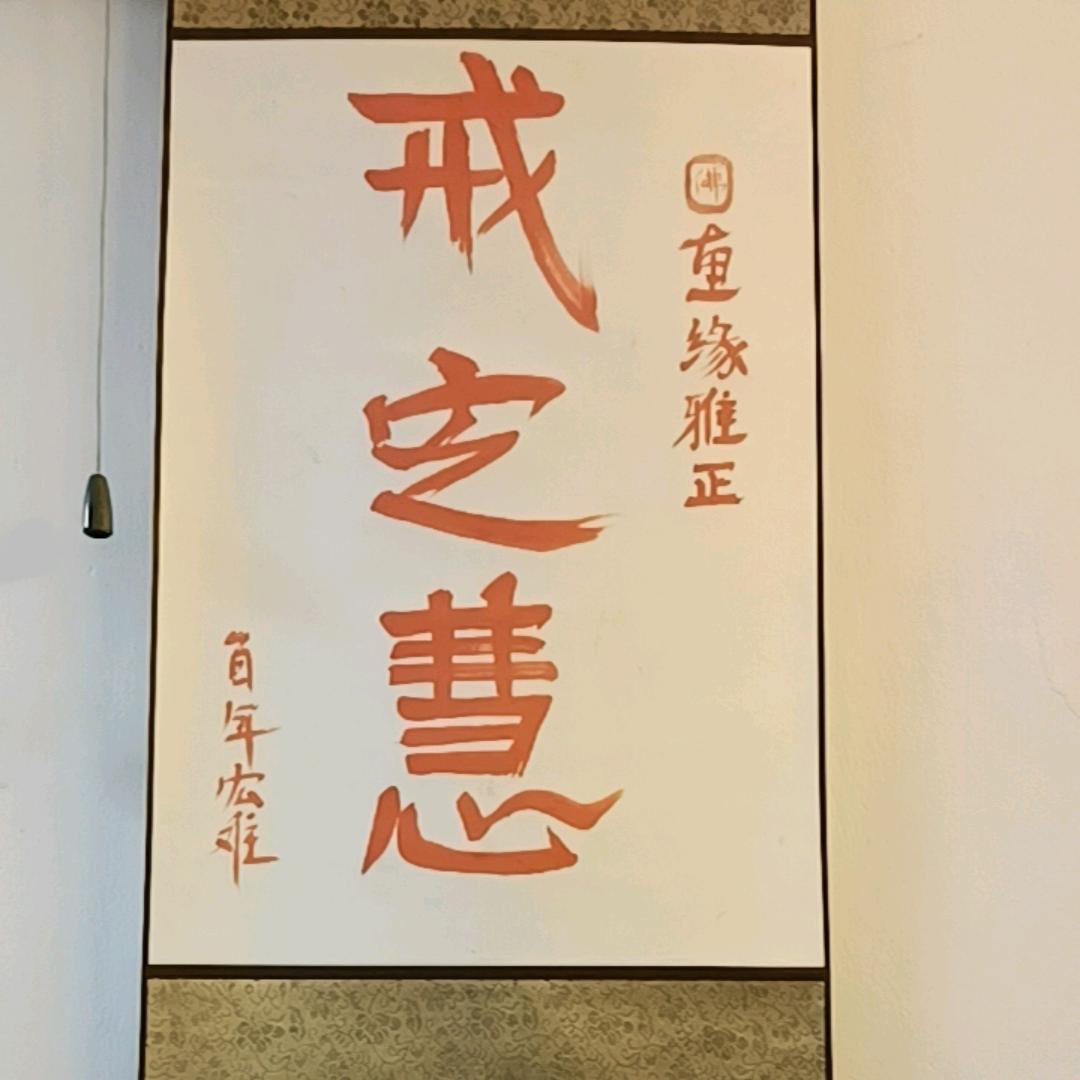 佛
重缘雅正
戒定慧
百年宏难